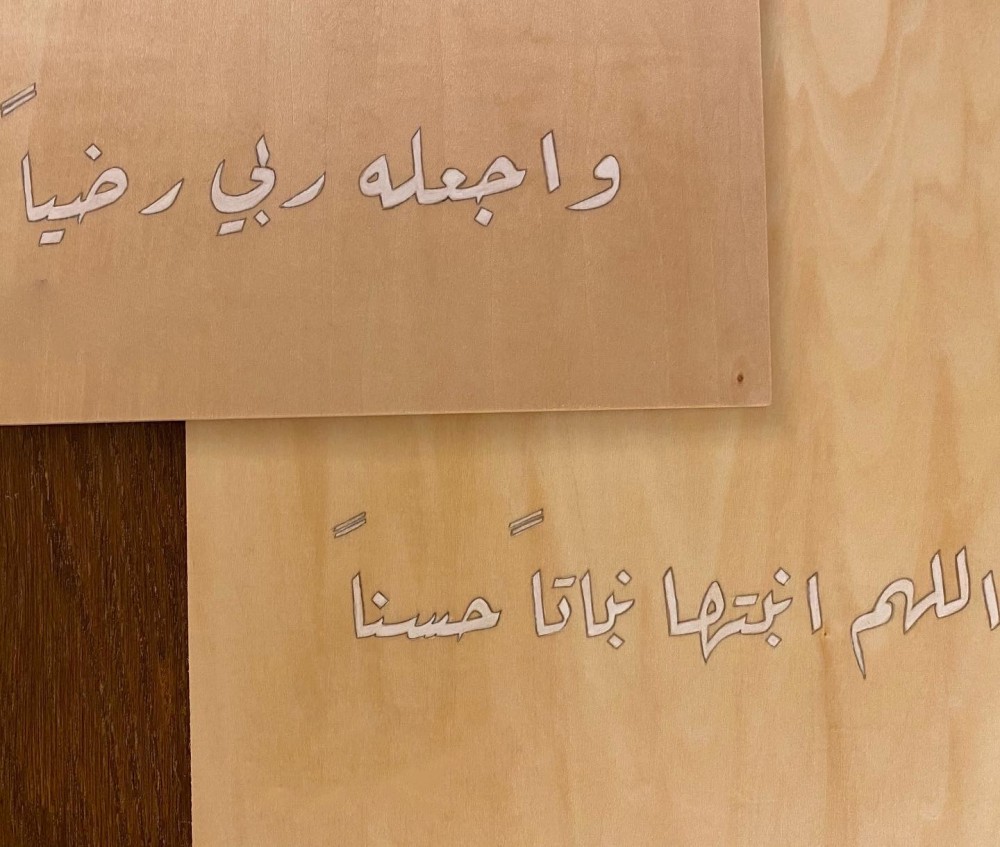 واجعله ربي رضياً
اللهم انبتها نباتاً حسناً